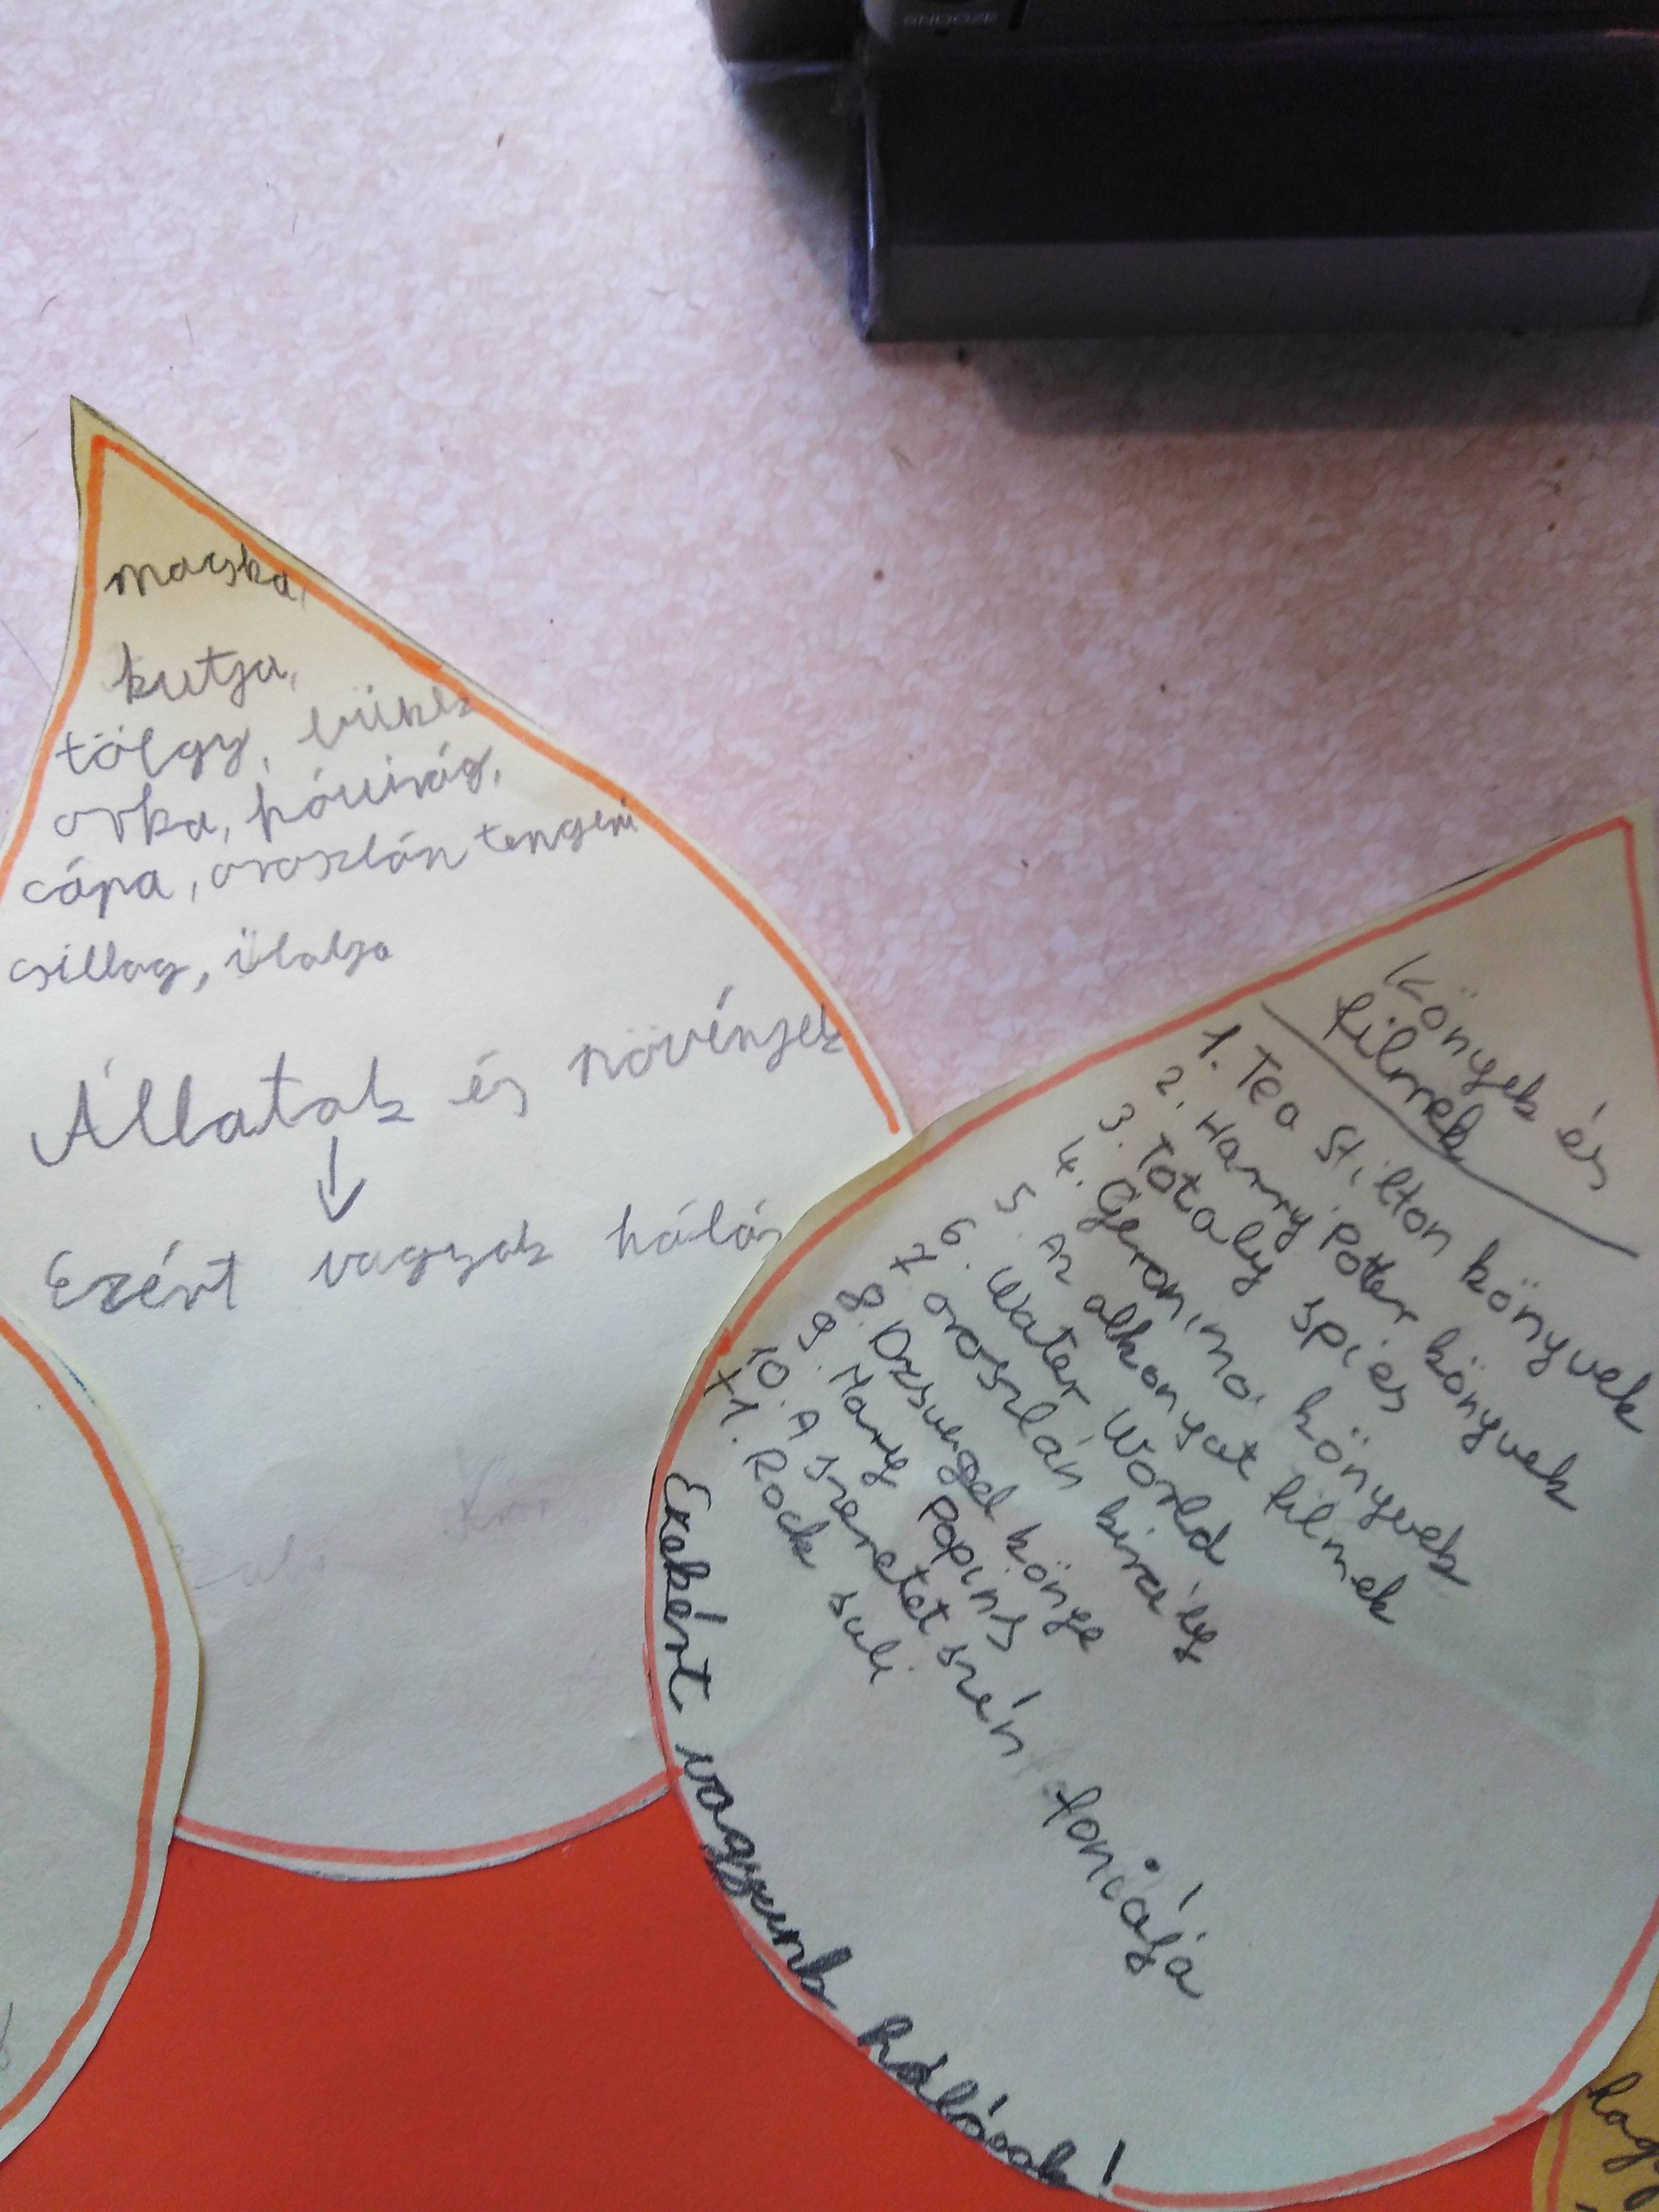 SNOOZE
macska,
kutya,
tölgy, bükk
orka, hóvirág,
cápa, oroszlán tengeri
csillag,
Állatok és növények
↓
Ezért vagyok hálás
Könyek és
filmek
1. Tea Stilton könyvek
2. Harry Potter könyvek
3. Totaly spies
4. Geronimo könyvek
5. Az alkonyat filmek
6. Water World
7. oroszlán király
8. Dzsungel könye
9. Marry Popins
10. A szeretet szén foniája
+1. Rock suli
Ezekért vagyunk hálásak!